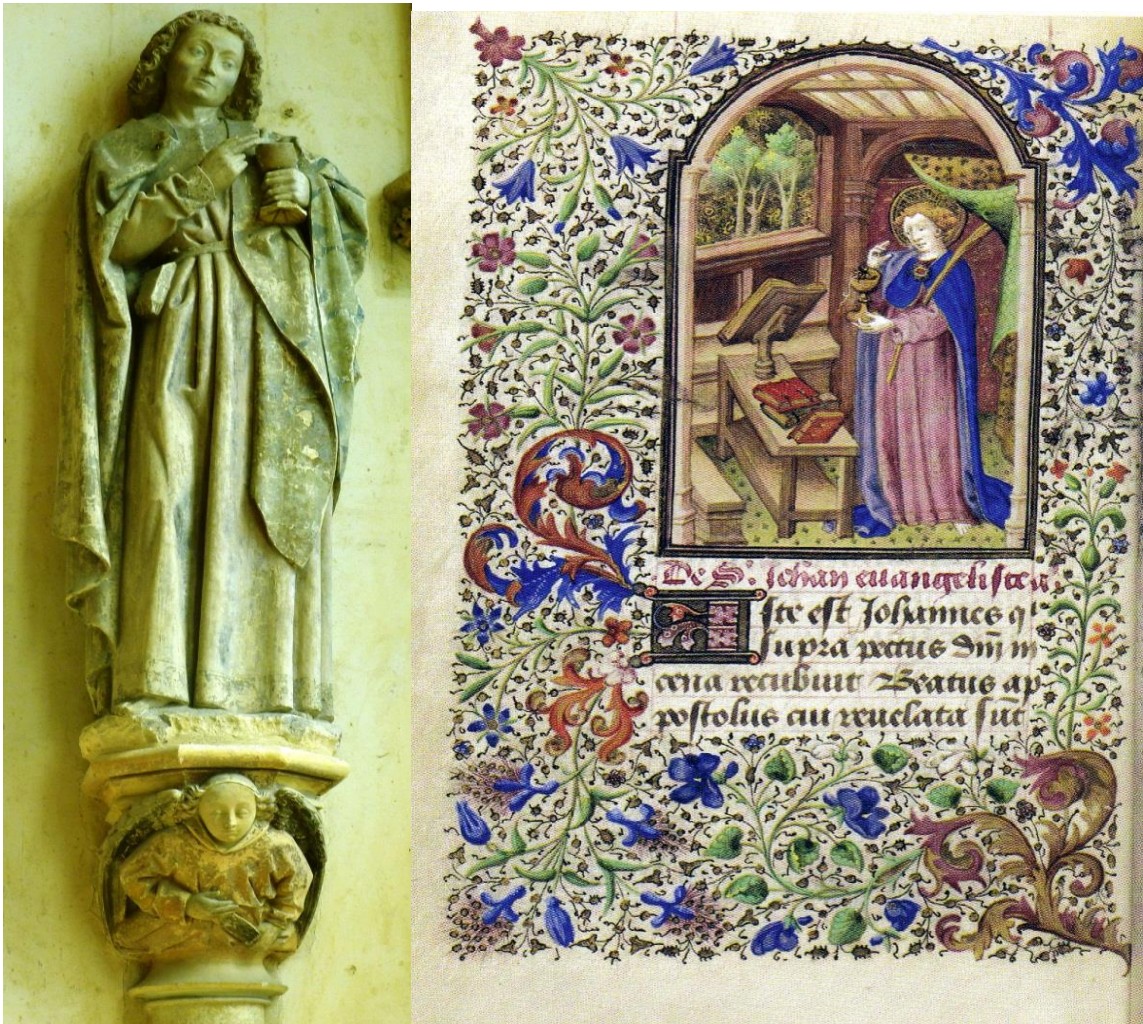 De S. Jehan euangeliste a.
Iste est Johannes qⁱ
supra pectus dn̄i in
cena recubuit Beatus ap
postolus cui reuelata sūt